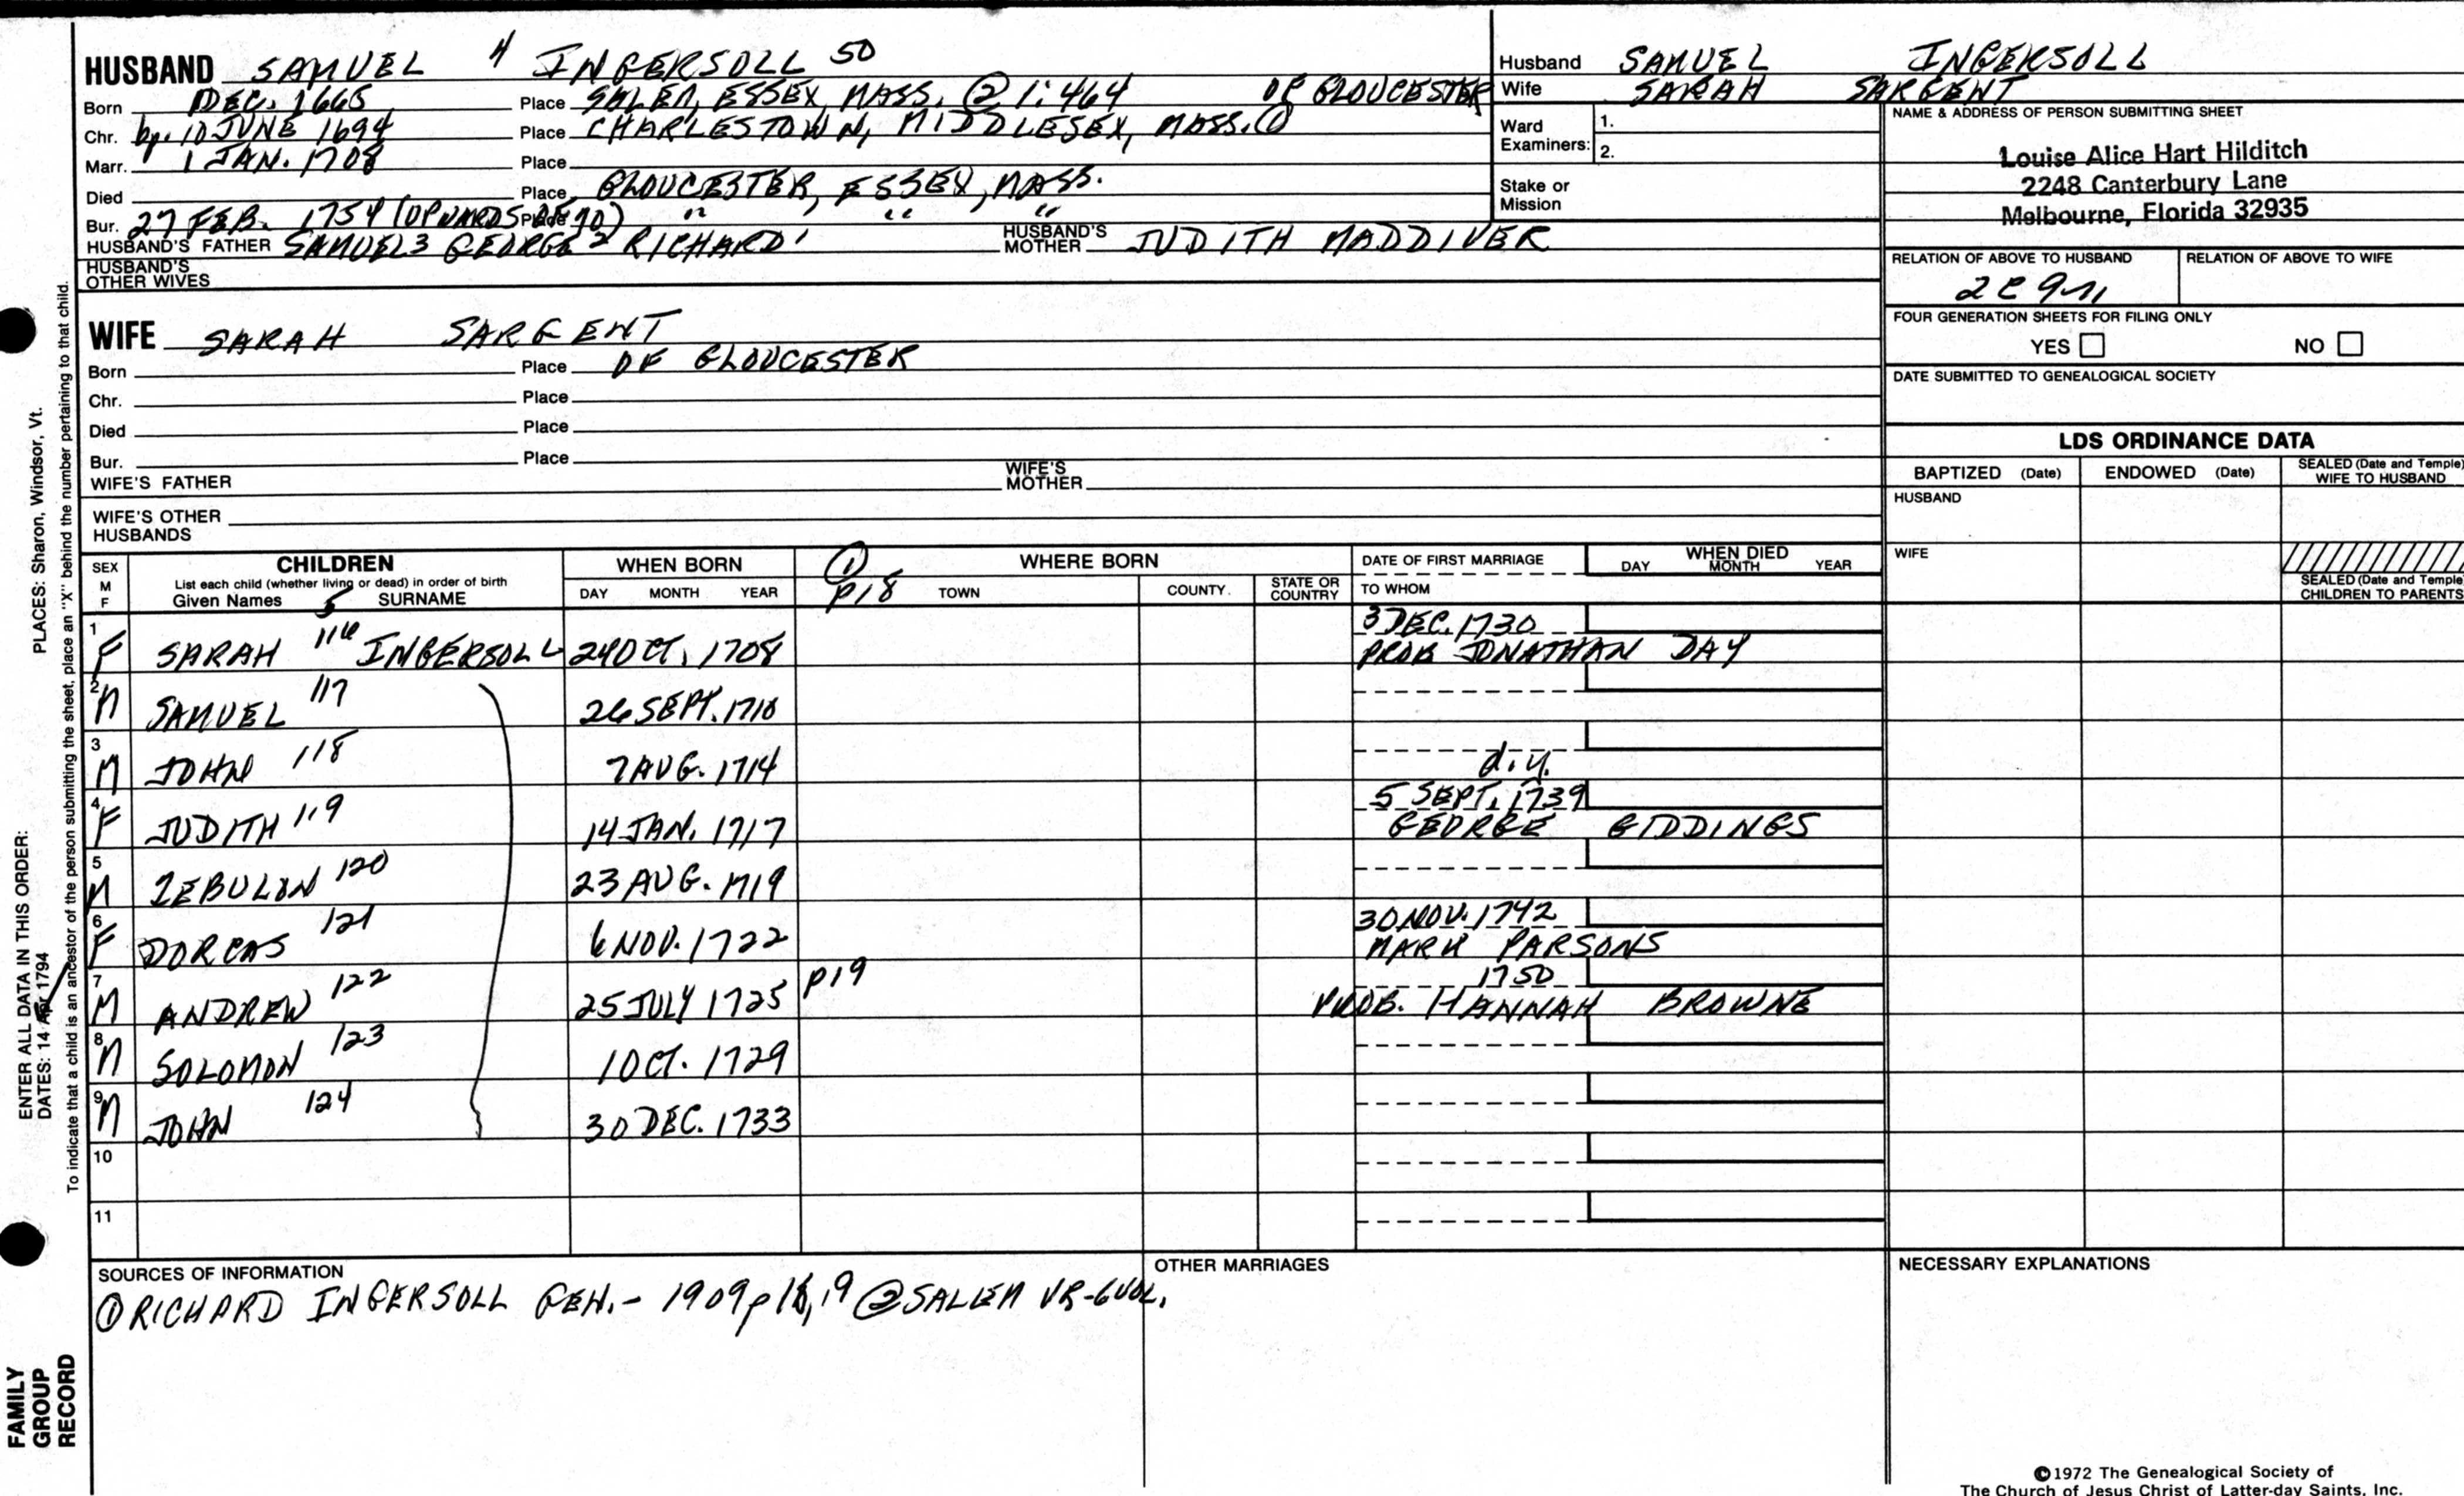 HUSBAND SAMUEL 4 INGERSOLL 50
Born DEC. 1665 Place SALEM, ESSEX, MASS. ② 1:464 OF GLOUCESTER
Chr. bp. 10 JUNE 1694 Place CHARLESTOWN, MIDDLESEX, MASS. ①
Marr. 1 JAN. 1708 Place
Died Place GLOUCESTER, ESSEX, MASS.
Bur. 27 FEB. 1754 (UPWARDS OF 90) Place " " "
HUSBAND'S FATHER SAMUEL 3 GEORGE 2 RICHARD 1 HUSBAND'S MOTHER JUDITH MADDIVER
HUSBAND'S OTHER WIVES
Husband SAMUEL INGERSOLL
Wife SARAH SARGENT
Ward Examiners: 1.
2.
Stake or Mission
NAME & ADDRESS OF PERSON SUBMITTING SHEET
Louise Alice Hart Hilditch
2248 Canterbury Lane
Melbourne, Florida 32935
RELATION OF ABOVE TO HUSBAND RELATION OF ABOVE TO WIFE
2C 9
FOUR GENERATION SHEETS FOR FILING ONLY
YES NO
DATE SUBMITTED TO GENEALOGICAL SOCIETY
WIFE SARAH SARGENT
Born Place OF GLOUCESTER
Chr. Place
Died Place
Bur. Place
WIFE'S FATHER WIFE'S MOTHER
WIFE'S OTHER HUSBANDS
LDS ORDINANCE DATA
BAPTIZED (Date) ENDOWED (Date) SEALED (Date and Temple) WIFE TO HUSBAND
HUSBAND
WIFE
SEALED (Date and Temple) CHILDREN TO PARENTS
SEX M F CHILDREN WHEN BORN ① WHERE BORN DATE OF FIRST MARRIAGE WHEN DIED
List each child (whether living or dead) in order of birth
Given Names 5 SURNAME DAY MONTH YEAR P18 TOWN COUNTY. STATE OR COUNTRY TO WHOM DAY MONTH YEAR
1 F SARAH 116 INGERSOLL 24 OCT. 1708 3 DEC. 1730
PROB JONATHAN DAY
2 M SAMUEL 117 26 SEPT. 1710
3 M JOHN 118 7 AUG. 1714 d.y.
4 F JUDITH 119 14 JAN. 1717 5 SEPT. 1739
GEORGE GIDDINGS
5 M ZEBULON 120 23 AUG. 1719
6 F DORCAS 121 6 NOV. 1722 30 NOV. 1742
MARK PARSONS
7 M ANDREW 122 25 JULY 1725 P19 1750
PROB. HANNAH BROWNE
8 M SOLOMON 123 1 OCT. 1729
9 M JOHN 124 30 DEC. 1733
10
11
SOURCES OF INFORMATION
① RICHARD INGERSOLL GEN. - 1909 p 18, 19 ② SALEM VR - 6 VOL.
OTHER MARRIAGES
NECESSARY EXPLANATIONS
©1972 The Genealogical Society of
The Church of Jesus Christ of Latter-day Saints, Inc.
FAMILY
GROUP
RECORD
ENTER ALL DATA IN THIS ORDER:
DATES: 14 Apr 1794
PLACES: Sharon, Windsor, Vt.
To indicate that a child is an ancestor of the person submitting the sheet, place an "X" behind the number pertaining to that child.